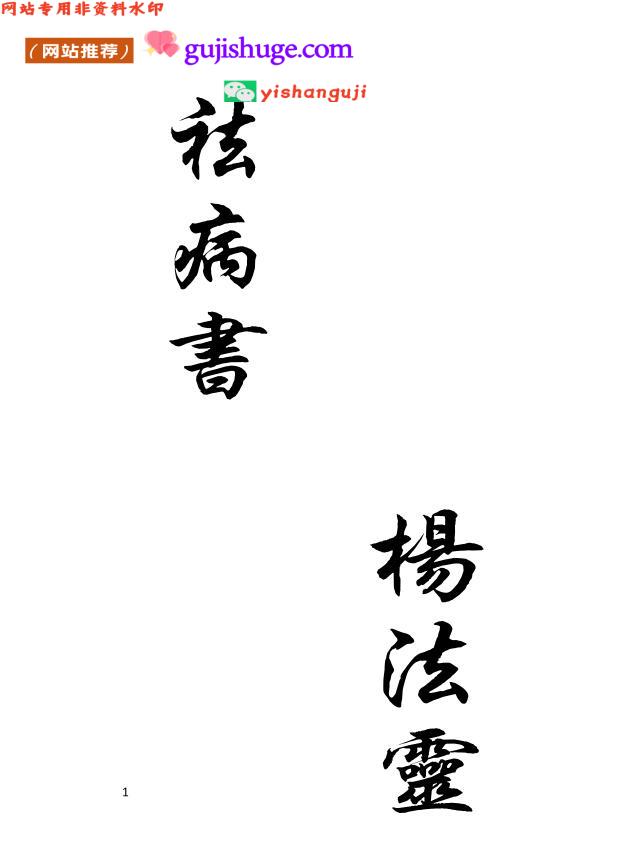 网站专用非资料水印
（网站推荐） gujishuge.com
yishanguji
祛病書
楊法靈
1